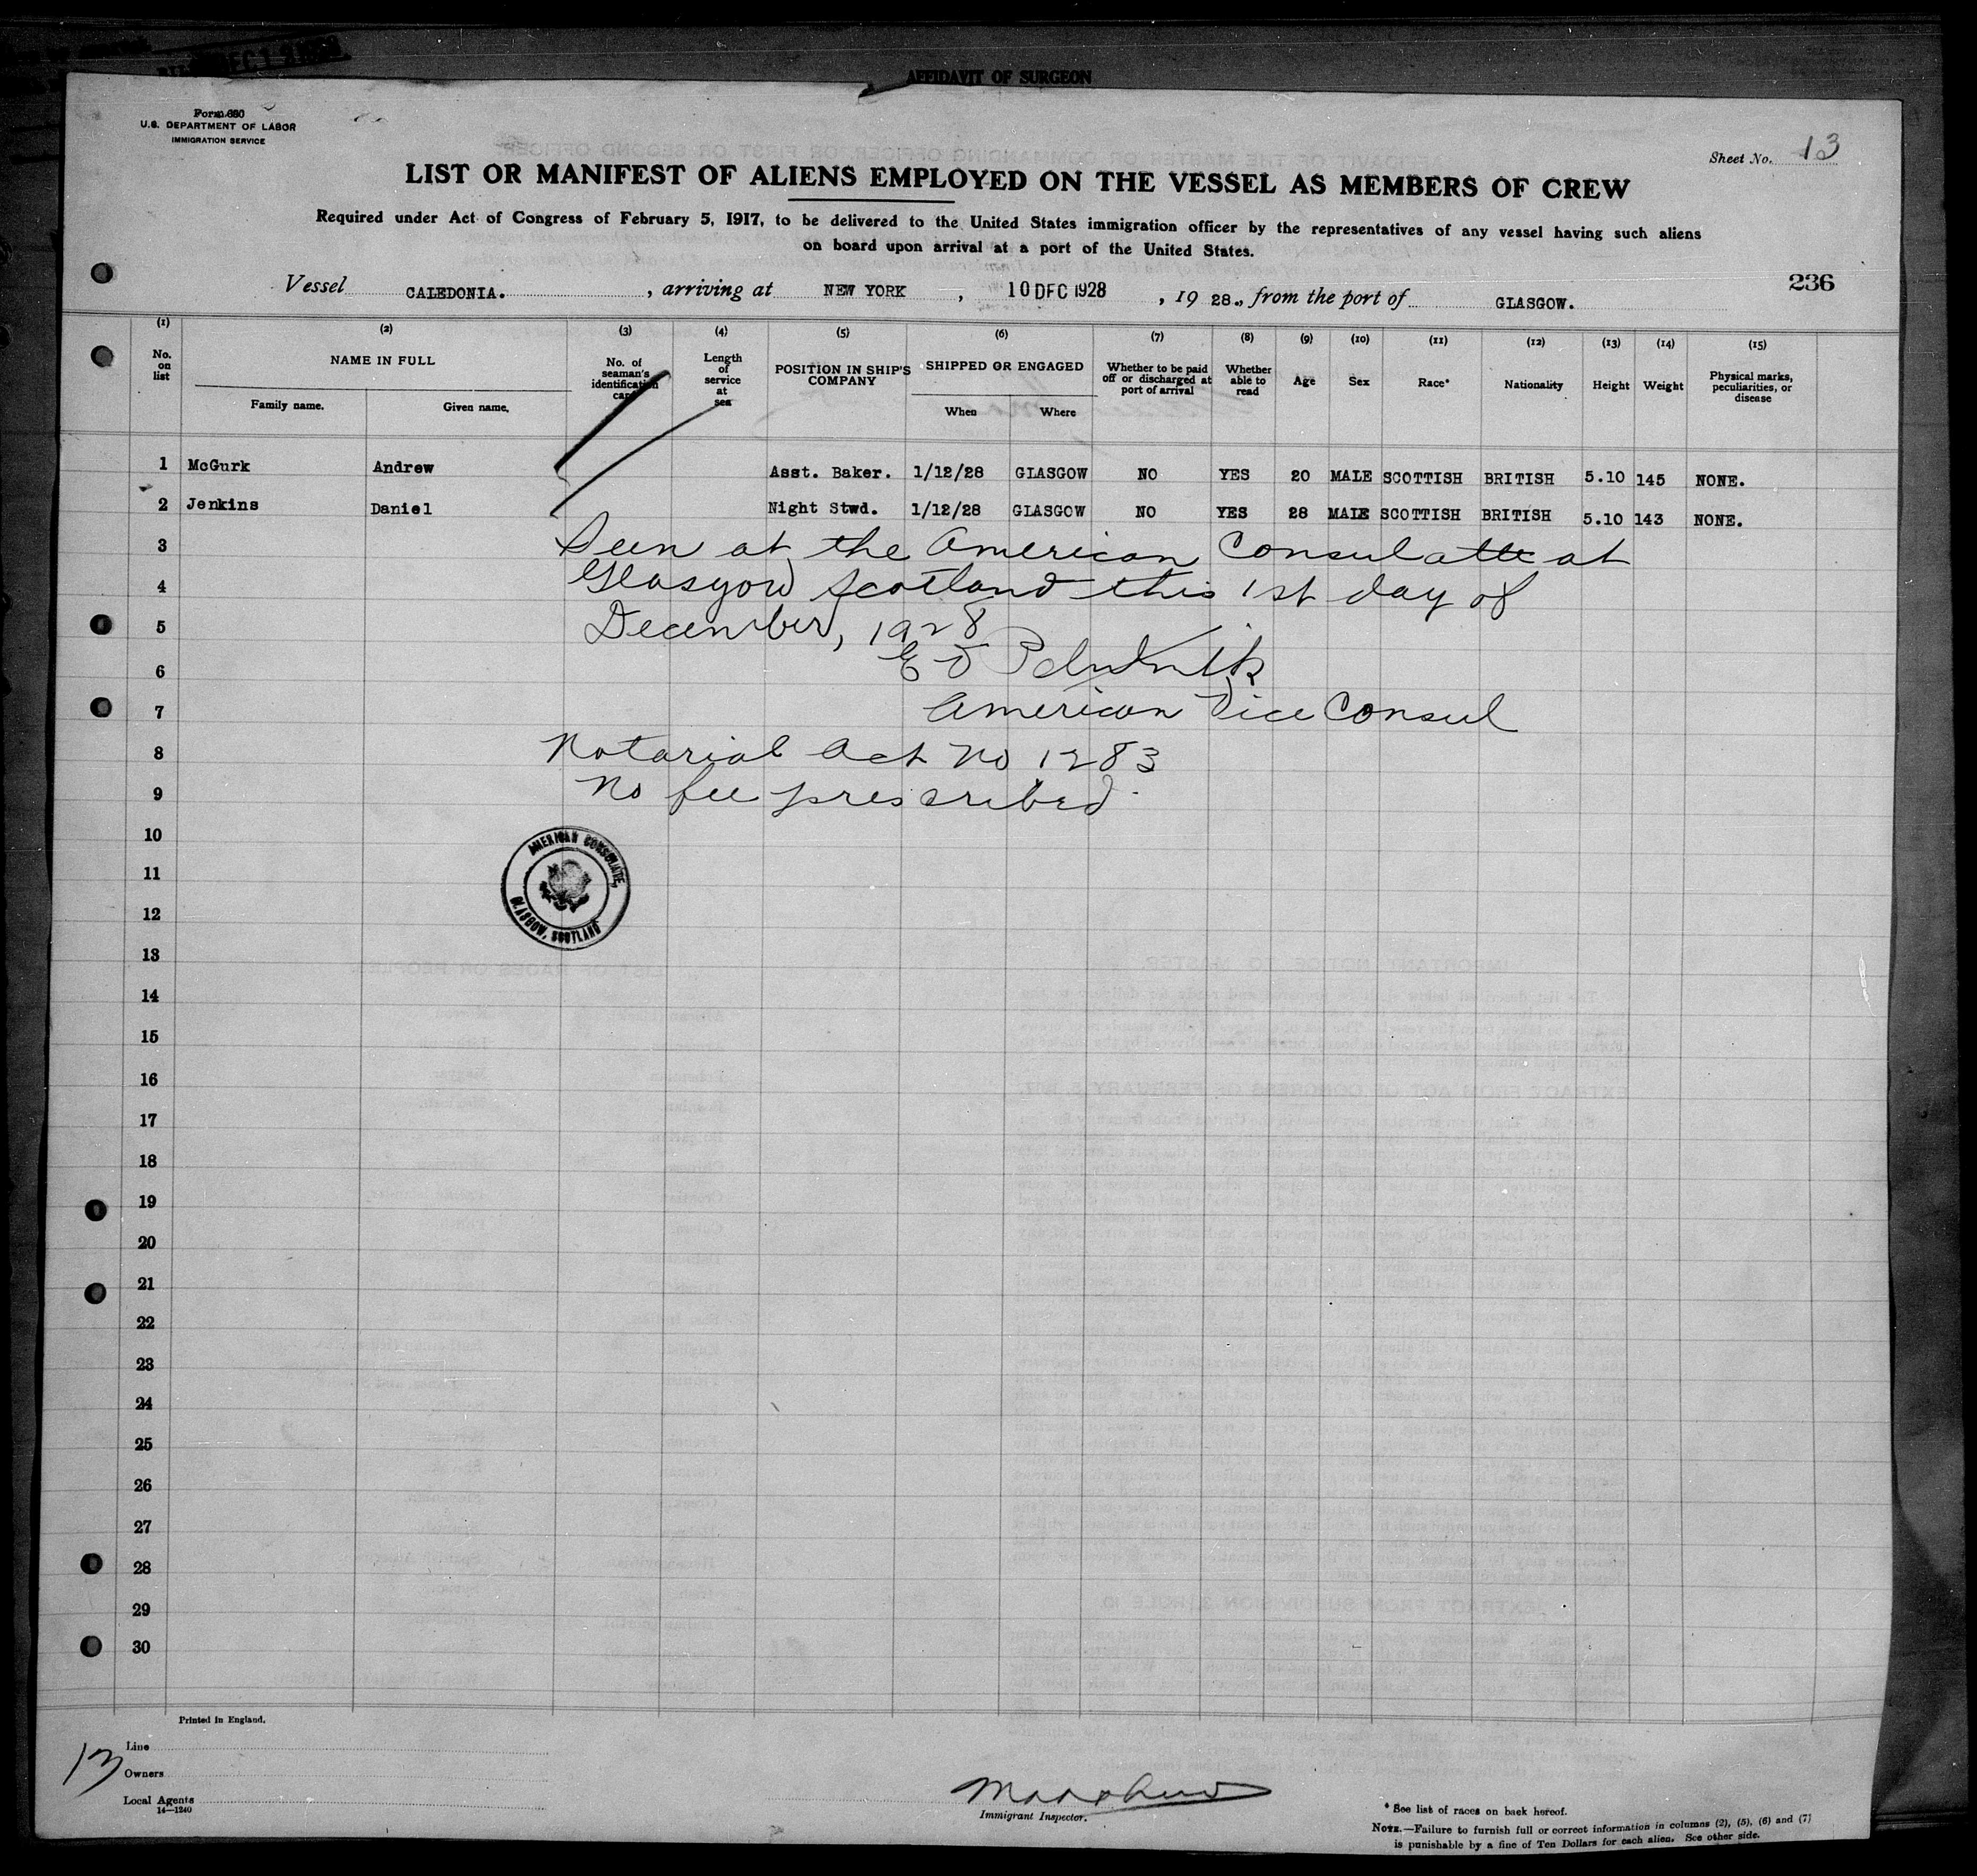 AFFIDAVIT OF SURGEON
Form 680
U.S. DEPARTMENT OF LABOR
IMMIGRATION SERVICE
Sheet No. 13
LIST OR MANIFEST OF ALIENS EMPLOYED ON THE VESSEL AS MEMBERS OF CREW
Required under Act of Congress of February 5, 1917, to be delivered to the United States immigration officer by the representatives of any vessel having such aliens
on board upon arrival at a port of the United States.
236
Vessel CALEDONIA. , arriving at NEW YORK , 10 DEC 1928 , 19 28., from the port of GLASGOW.
(1) (2) (3) (4) (5) (6) (7) (8) (9) (10) (11) (12) (13) (14) (15)
No. on list
NAME IN FULL
Family name. Given name.
No. of seaman's identification card
Length of service at sea
POSITION IN SHIP'S COMPANY
SHIPPED OR ENGAGED
When Where
Whether to be paid off or discharged at port of arrival
Whether able to read
Age Sex Race* Nationality Height Weight
Physical marks, peculiarities, or disease
1 McGurk Andrew Asst. Baker. 1/12/28 GLASGOW NO YES 20 MALE SCOTTISH BRITISH 5.10 145 NONE.
2 Jenkins Daniel Night Stwd. 1/12/28 GLASGOW NO YES 28 MALE SCOTTISH BRITISH 5.10 143 NONE.
3 Seen at the American Consulate at
4 Glasgow Scotland this 1st day of
5 December, 1928
6
7 American Vice Consul
8 Notarial Act No 1283
9 No fee prescribed
10
AMERICAN CONSULATE,
GLASGOW, SCOTLAND
11
12
13
14
15
16
17
18
19
20
21
22
23
24
25
26
27
28
29
30
Printed in England.
13
Line
Owners
Local Agents
14—1240
Immigrant Inspector.
* See list of races on back hereof.
NOTE.—Failure to furnish full or correct information in columns (2), (5), (6) and (7)
is punishable by a fine of Ten Dollars for each alien. See other side.